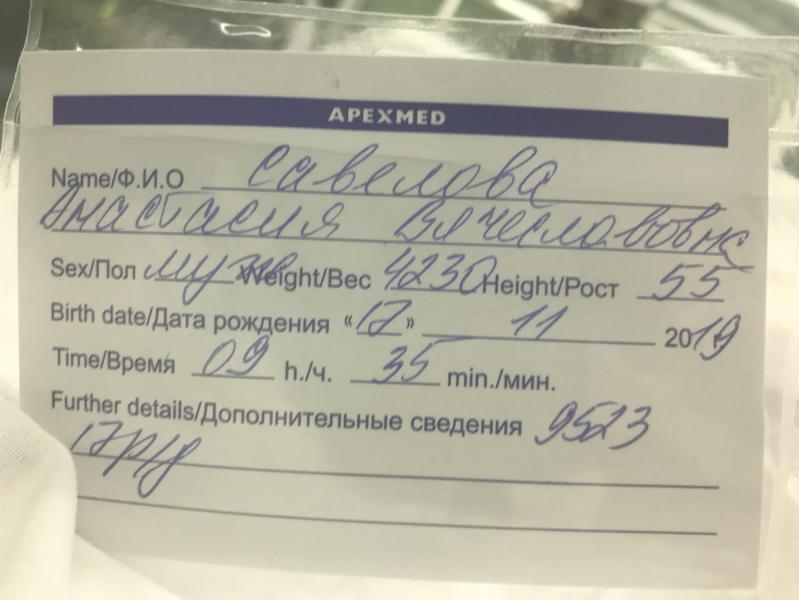 APEXMED
Name/Ф.И.О Савелова
Анастасия Вячеславовна
Sex/Пол муж Weight/Вес 4230 Height/Рост 55
Birth date/Дата рождения «17» 11 2019
Time/Время 09 h./ч. 35 min./мин.
Further details/Дополнительные сведения 9523